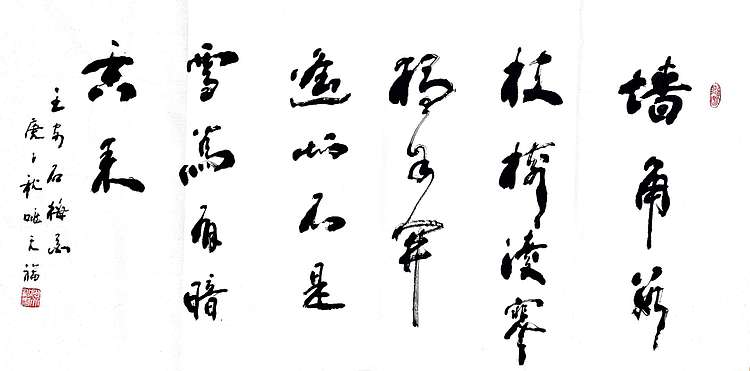 墙角数
枝梅凌寒
独自开
遥知不是
雪為有暗
香来
王安石梅花
秋